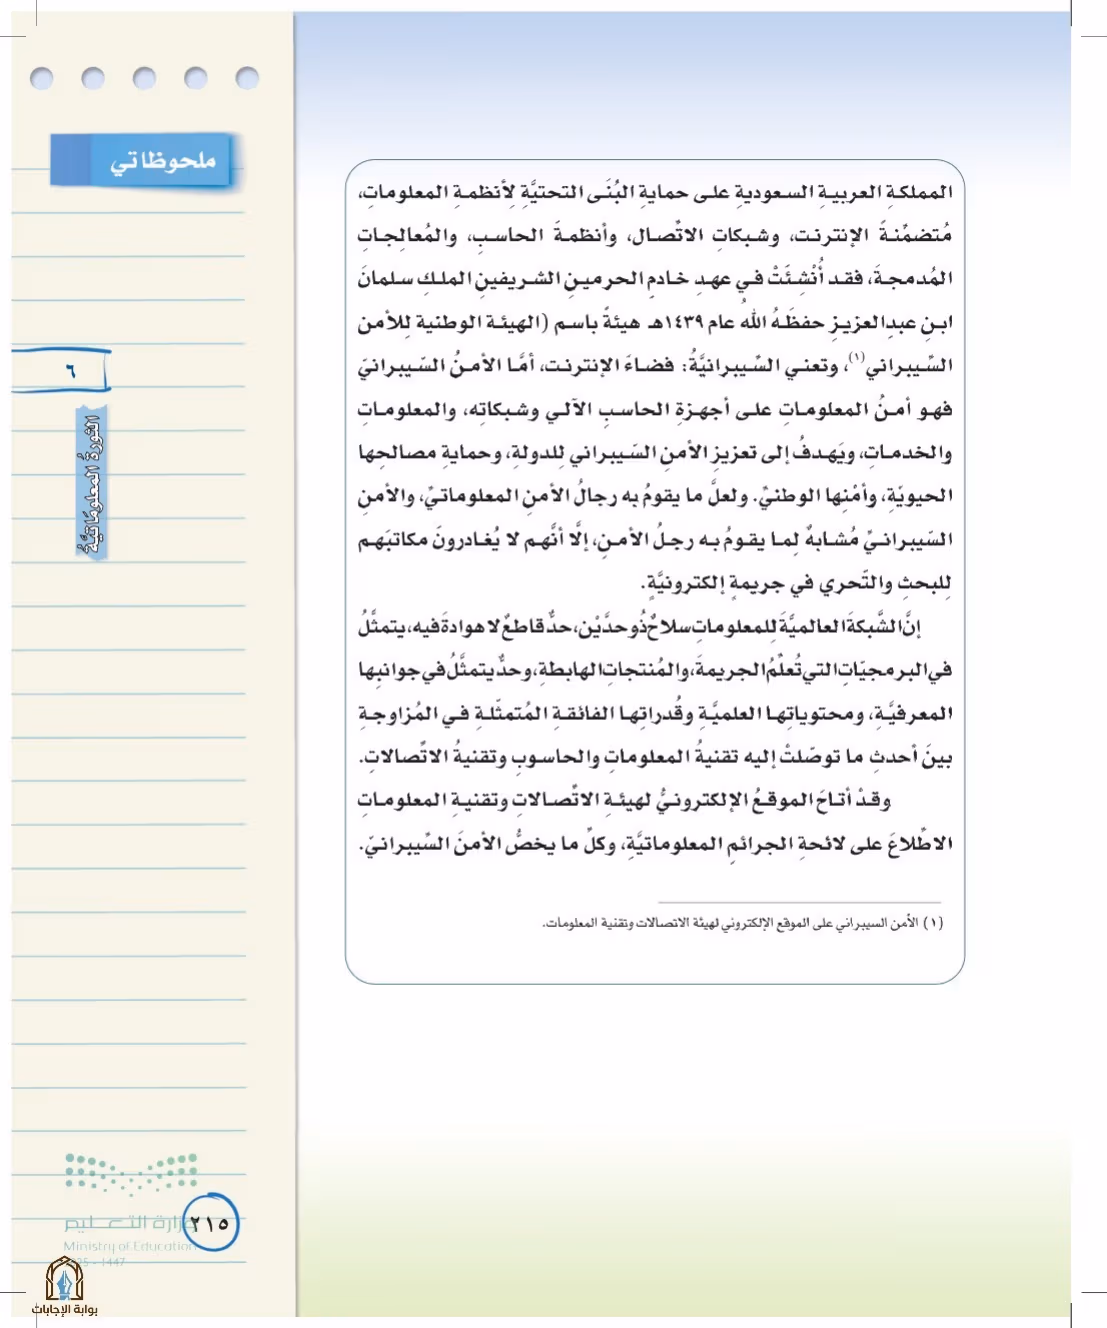 ملحوظاتي
المملكةِ العربيةِ السعوديةِ على حمايةِ البُنَى التحتيَّةِ لِأنظمةِ المعلوماتِ،
مُتضمِّنةً الإنترنت، وشبكاتِ الاتِّصال، وأنظمةَ الحاسبِ، والمُعالِجاتِ
المُدمجةَ، فقد أُنْشِئَتْ في عهدِ خادمِ الحرمينِ الشريفينِ الملكِ سلمانَ
ابنِ عبدِالعزيزِ حفظَهُ اللهُ عام ١٤٣٩هـ هيئةً باسم (الهيئة الوطنية لِلأمن
السِّيبراني(١)، وتعني السِّيبرانيَّةُ: فضاءَ الإنترنت، أمَّا الأمنُ السّيبرانيَ
فهو أمنُ المعلوماتِ على أجهزةِ الحاسبِ الآلي وشبكاتِه، والمعلوماتِ
والخدماتِ، ويَهدفُ إلى تعزيزِ الأمنِ السّيبراني لِلدولةِ، وحمايةِ مصالحِها
الحيويّةِ، وأمْنِها الوطنيِّ. ولعلَّ ما يقومُ به رجالُ الأمنِ المعلوماتيِّ، والأمنِ
السّيبرانيِّ مُشابهٌ لِما يقومُ به رجلُ الأمنِ، إلَّا أنَّهم لا يُغادرونَ مكاتبَهم
لِلبحثِ والتّحري في جريمةٍ إلكترونيَّةٍ.
إنَّ الشَّبكةَ العالميَّةَ لِلمعلوماتِ سلاحٌ ذُو حدَّيْن، حدٌّ قاطعٌ لا هوادةَ فيه، يتمثَّلُ
في البرمجيّاتِ التي تُعلِّمُ الجريمةَ، والمُنتجاتِ الهابطةِ، وحدٌّ يتمثَّلُ في جوانبِها
المعرفيَّةِ، ومحتوياتِها العلميَّةِ وقُدراتِها الفائقةِ المُتمثّلةِ في المُزاوجةِ
بينَ أحدثِ ما توصّلتْ إليه تقنيةُ المعلوماتِ والحاسوبِ وتقنيةُ الاتِّصالاتِ.
وقدْ أتاحَ الموقعُ الإلكترونيُّ لهيئةِ الاتِّصالاتِ وتقنيةِ المعلوماتِ
الاطِّلاعَ على لائحةِ الجرائمِ المعلوماتيَّةِ، وكلِّ ما يخصُّ الأمنَ السِّيبرانيّ.
(١) الأمن السيبراني على الموقع الإلكتروني لهيئة الاتصالات وتقنية المعلومات.
٦
الثورةُ المعلوماتيَّةُ
وزارة التعليم
Ministry of Education
2025 - 1447
٢١٥
بوابة الإجابات